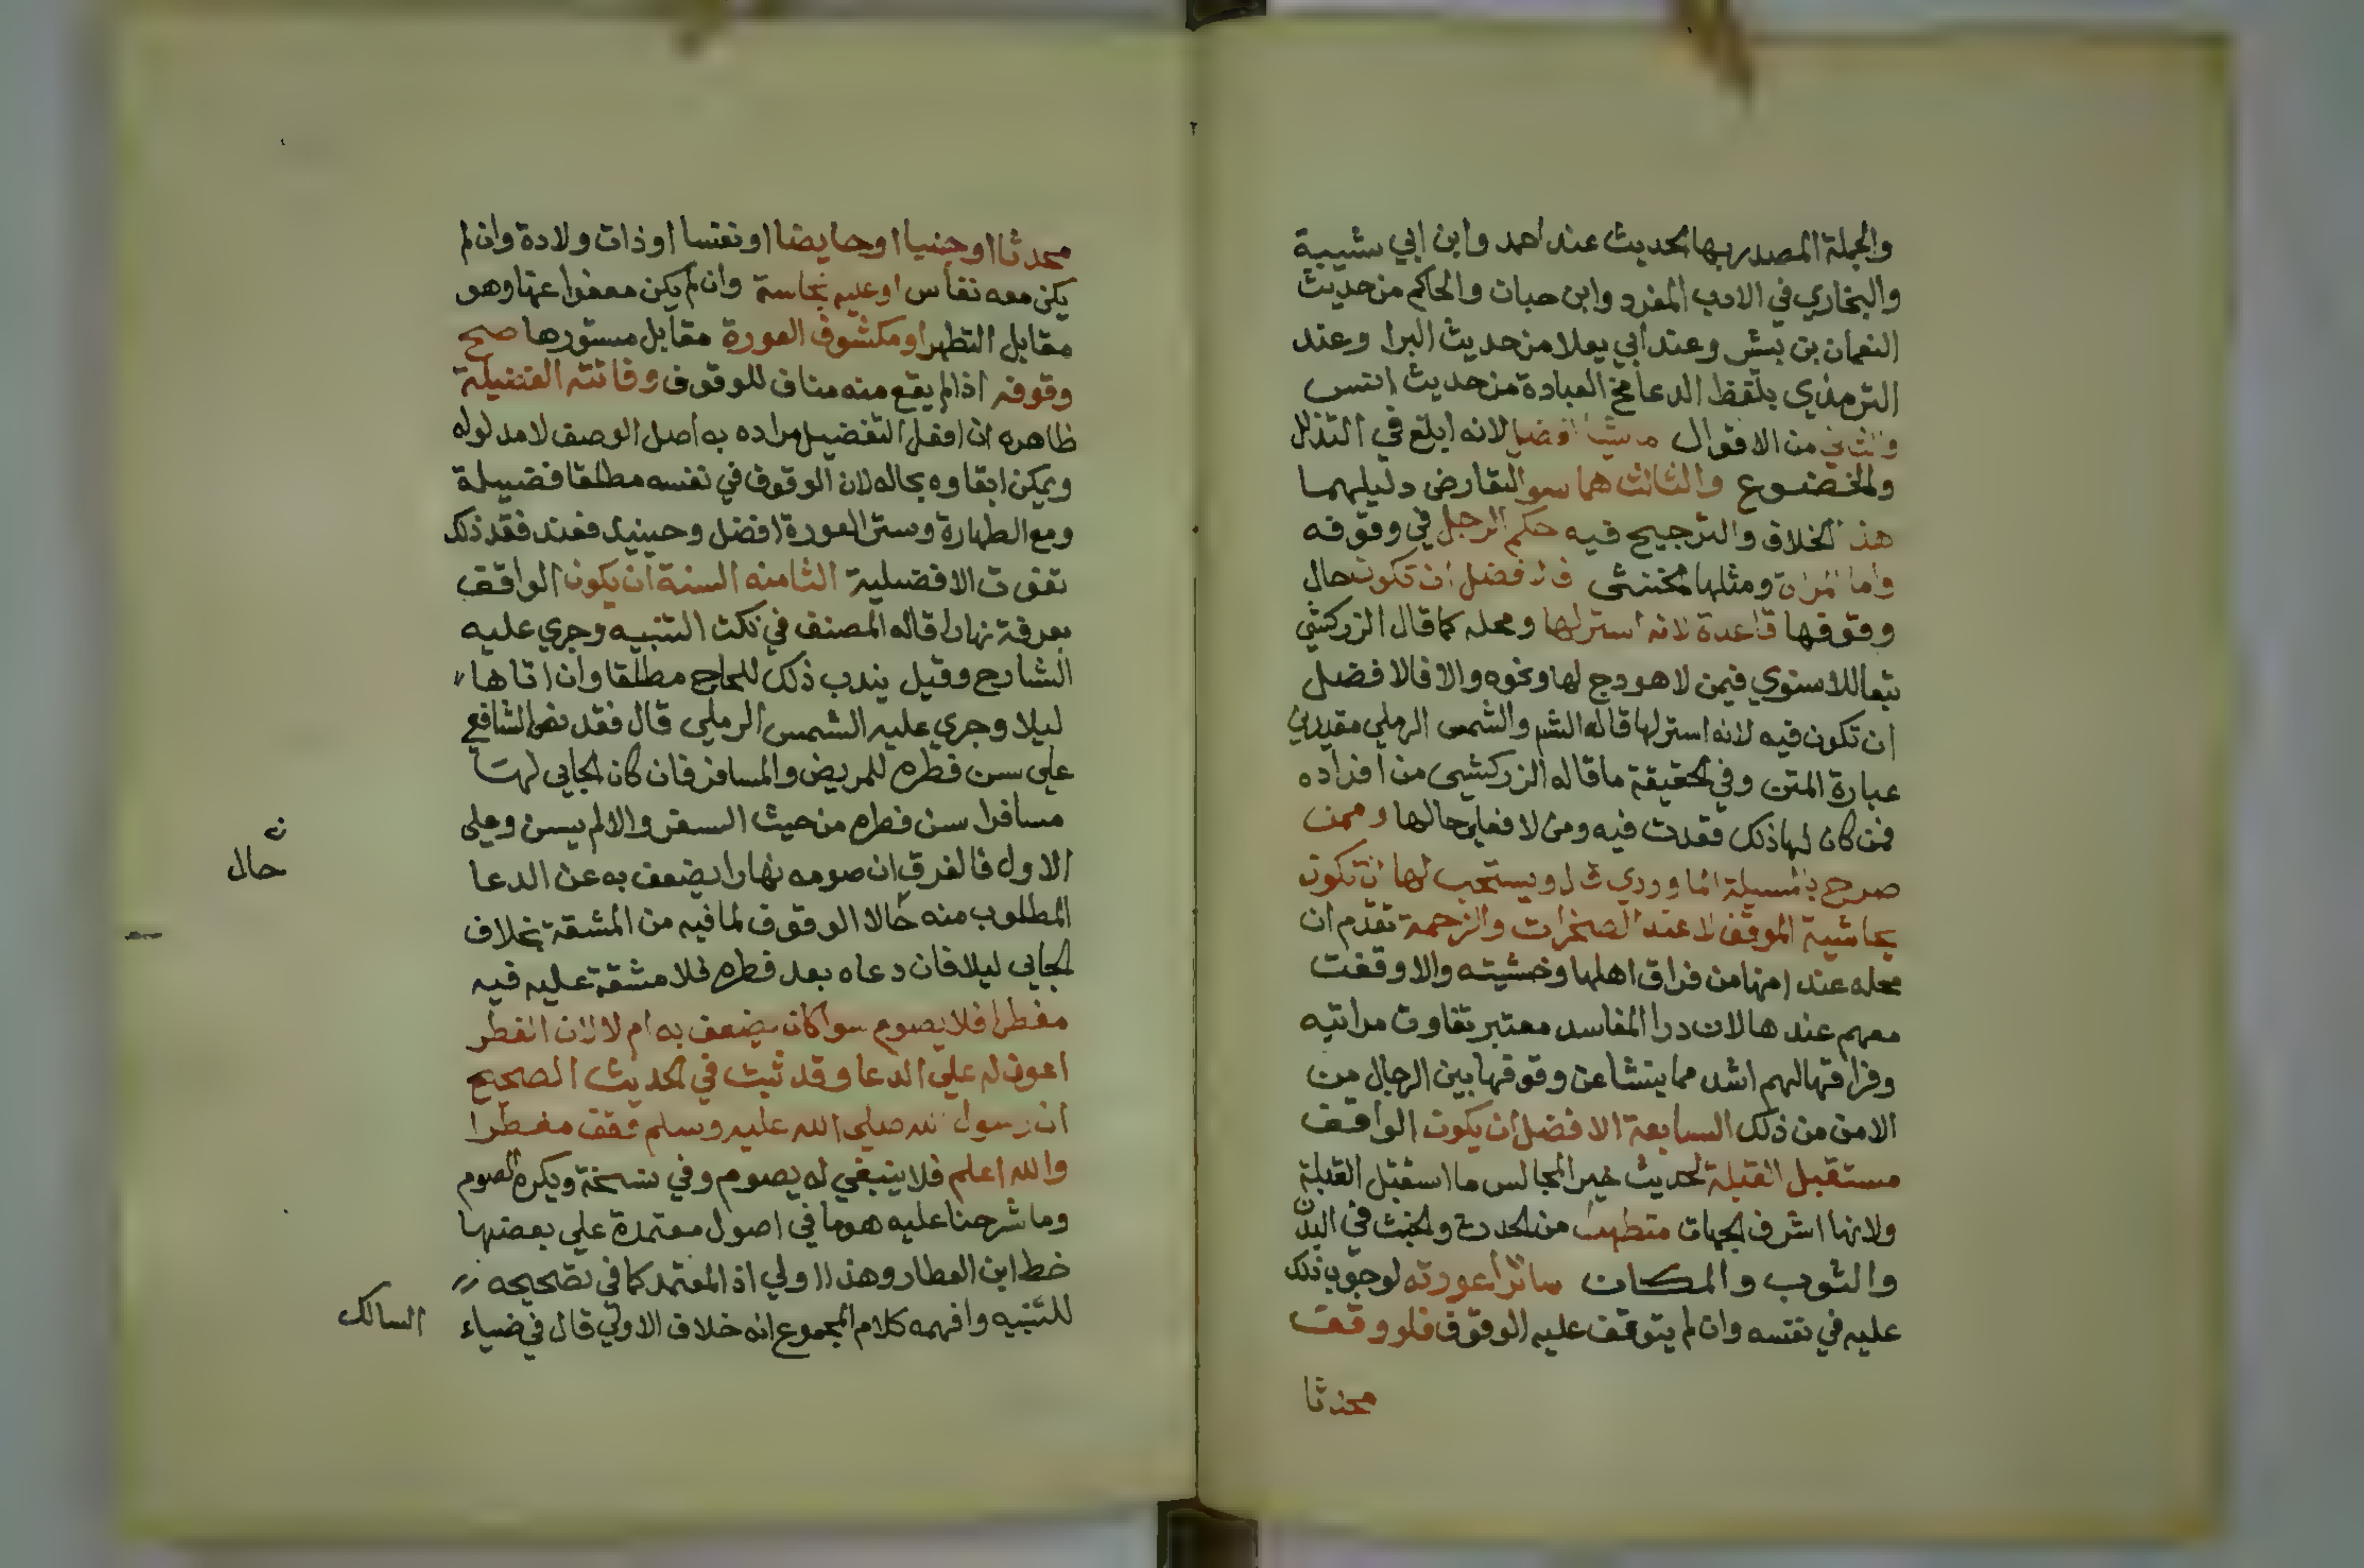 والجملة المصدر بها الحديث عند احمد وابن ابي شيبة
والبخاري في الادب المفرد وابن حبان والحاكم من حديث
النعمان بن بشر وعند ابي يعلا من حديث البرا وعند
الترمذي بلفظ الدعا مخ العبادة من حديث انس
والثاني من الاقوال ماشيا افضل لانه ابلغ في التذلل
والخضوع والثالث هما سوا لتعارض دليلهما
هذا الخلاف والترجيح فيه حكم الرجل في وقوفه
واما المراة ومثلها الخنثى فالافضل ان تكون حال
وقوفها قاعدة لانه استر لها ومحله كما قال الزركشي
تبعا للاسنوي فيمن لا هودج لها ونحوه والا فالافضل
ان تكون فيه لانه استر لها قاله الشم والشمس الرملي مقيدين
عبارة المتن وفي الحقيقة ما قاله الزركشي من افراده
فمن كان لها ذلك فقعدت فيه ومن لا فعلي حالها وممن
صرح بالمسيلة الماوردي قال ويستحب لها ان تكون
بحاشية الموقف لا عند الصخرات والزحمة تقدم ان
محله عند امنها من فراق اهلها وخشيته والا وقفت
معهم عندها لان درا المفاسد معتبر تفاوت مراتبه
وفراقها لهم اشد مما ينشا عن وقوفها بين الرجال من
الامن من ذلك السابعة الافضل ان يكون الواقف
مستقبل القبلة لحديث خير المجالس ما استقبل القبلة
ولانها اشرف الجهات متطهرا من الحدث والخبث في البدن
والثوب والمكان ساترا عورته لوجوب ذلك
عليه في نفسه وان لم يتوقف عليه الوقوف فلو وقف
محدثا
محدثا او جنبا او حايضا او نفسا او ذات ولادة وان لم
يكن معه نفاس او عليه نجاسة وان لم يكن معفوا عنها وهو
مقابل التطهر او مكشوف العورة مقابل مستورها صح
وقوفه اذا لم يقع منه مناف للوقوف وفاتته الفضيلة
ظاهره ان افعل التفضيل مراده به اصل الوصف لا مدلوله
ويمكن ابقاوه بحاله لان الوقوف في نفسه مطلقا فضيلة
ومع الطهارة وستر العورة افضل وحينيذ فعند فقد ذلك
تفوت الافضلية الثامنه السنة ان يكون الواقف
بعرفة نهارا قاله المصنف في نكت التنبيه وجري عليه
الشارح وقيل يندب ذلك للحاج مطلقا وان اتاها
ليلا وجري عليه الشمس الرملي قال فقد نص الشافع
علي سن فطره للمريض والمسافر فان كان الجايي لهتا
مسافرا سن فطره من حيث السفر والا لم يسن وعلي
الاول فالفرق ان صومه نهارا يضعف به عن الدعا
المطلوب منه حالا الوقوف لما فيه من المشقة بخلاف
ن
حال
الجايي ليلا فان دعاه بعد فطره فلا مشقة عليه فيه
مفطرا فلا يصوم سوا كان يضعف به ام لا لان الفطر
اعون له علي الدعا وقد ثبت في الحديث الصحيح
ان رسول الله صلي الله عليه وسلم وقف مفطرا
والله اعلم فلا ينبغي له يصوم وفي نسخة ويكره الصوم
وما شرحنا عليه هو ما في اصول معتمدة علي بعضها
خط ابن العطار وهذا اولي اذ المعتمد كما في تصحيحه
للتنبيه وافهمه كلام المجموع انه خلاف الاولي قال في ضياء
السالك